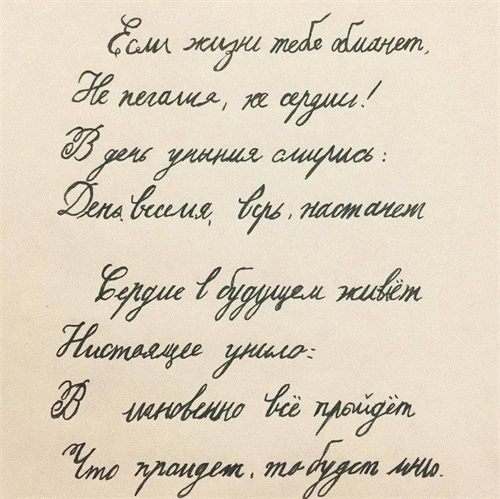 Если жизни тебе обманет,
Не пегалия, не сердии!
В день уныния смирись:
День веселия, верь, настанет
Сердие в будущем живёт
Нистоящее уныло:
В мановенно всё пройдёт
Что проидет, то будет мило.